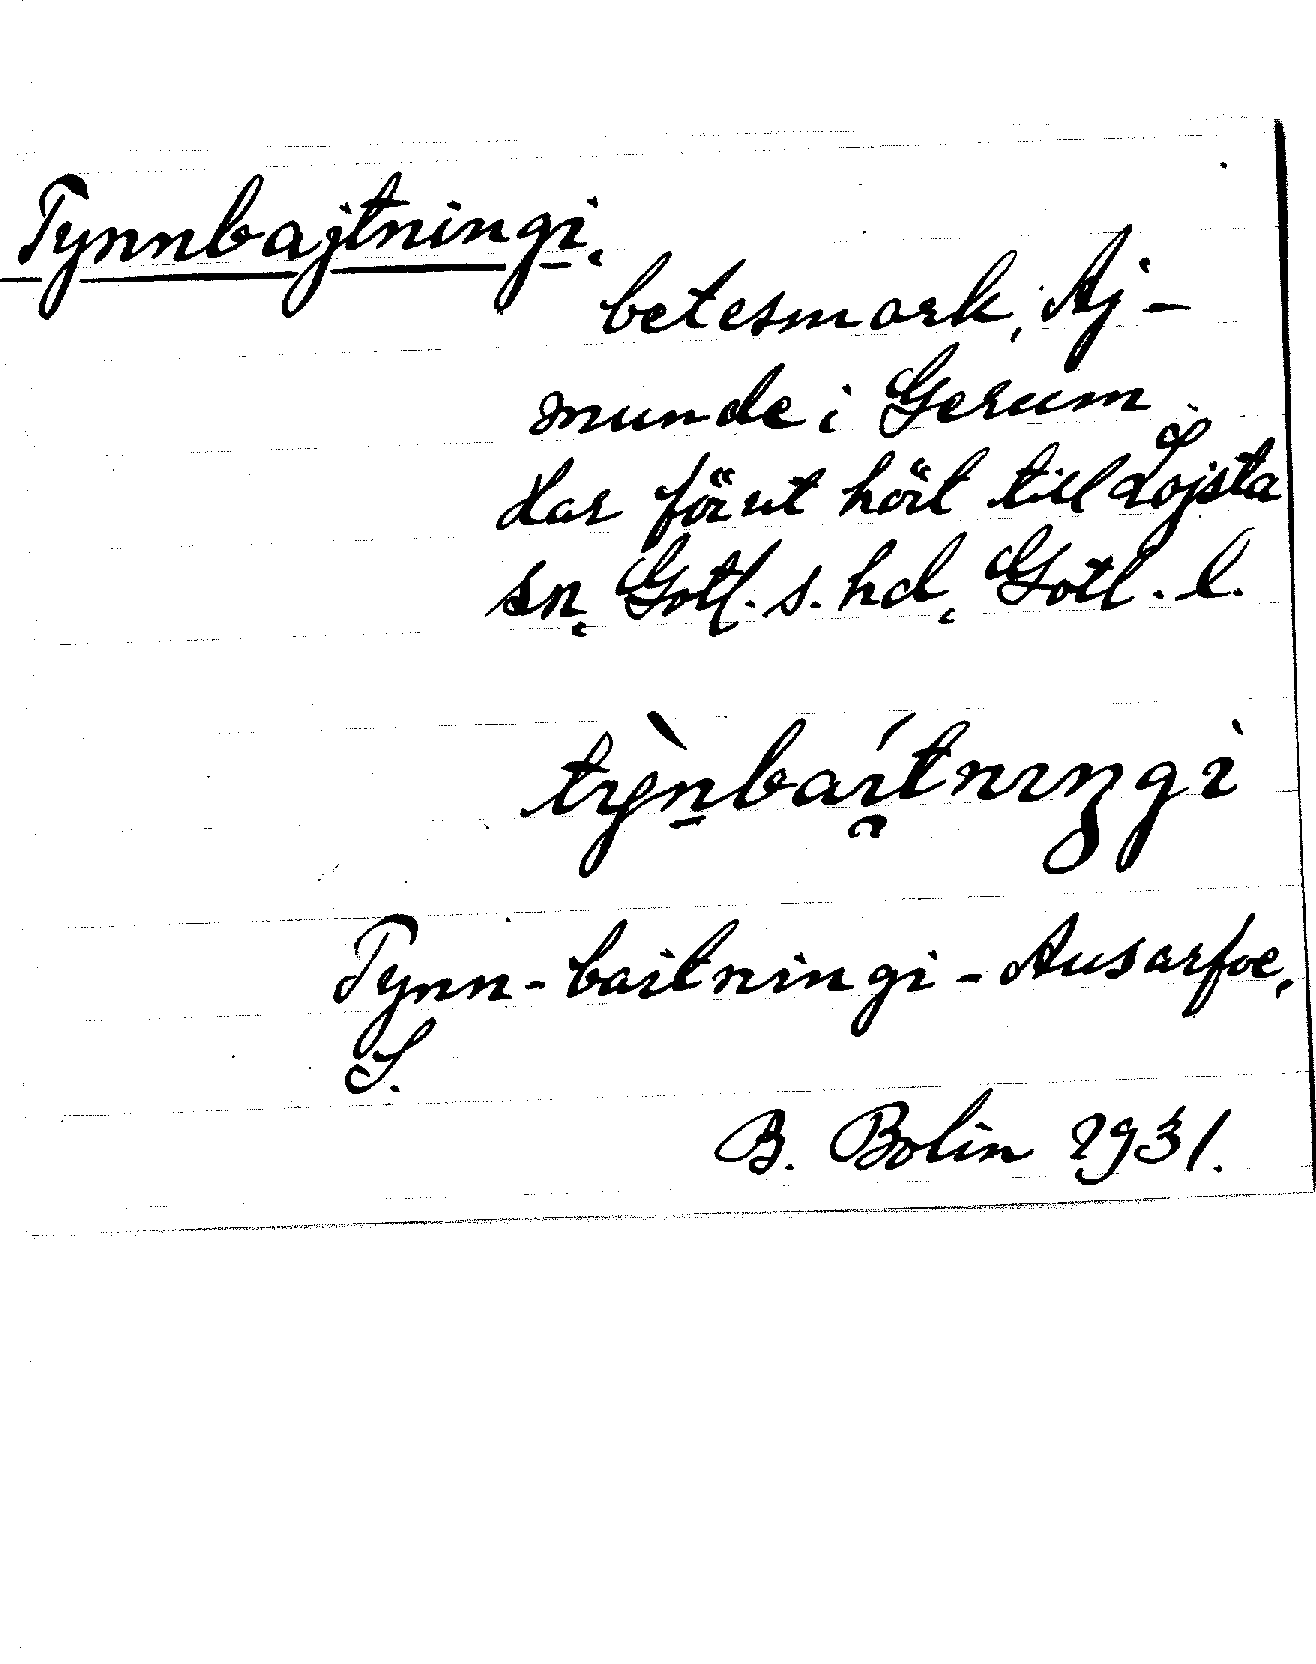 Tynnbajtningi,
betesmark, Aj-
munde i Gerum
Har förut hört till Lojsta
sn, Gotl. s. hd, Gotl. l.
tỳn̲baı̯́tnıŋgi
Tynn-baitningi - Ausarfoe,
S.
B. Bolin 1931.